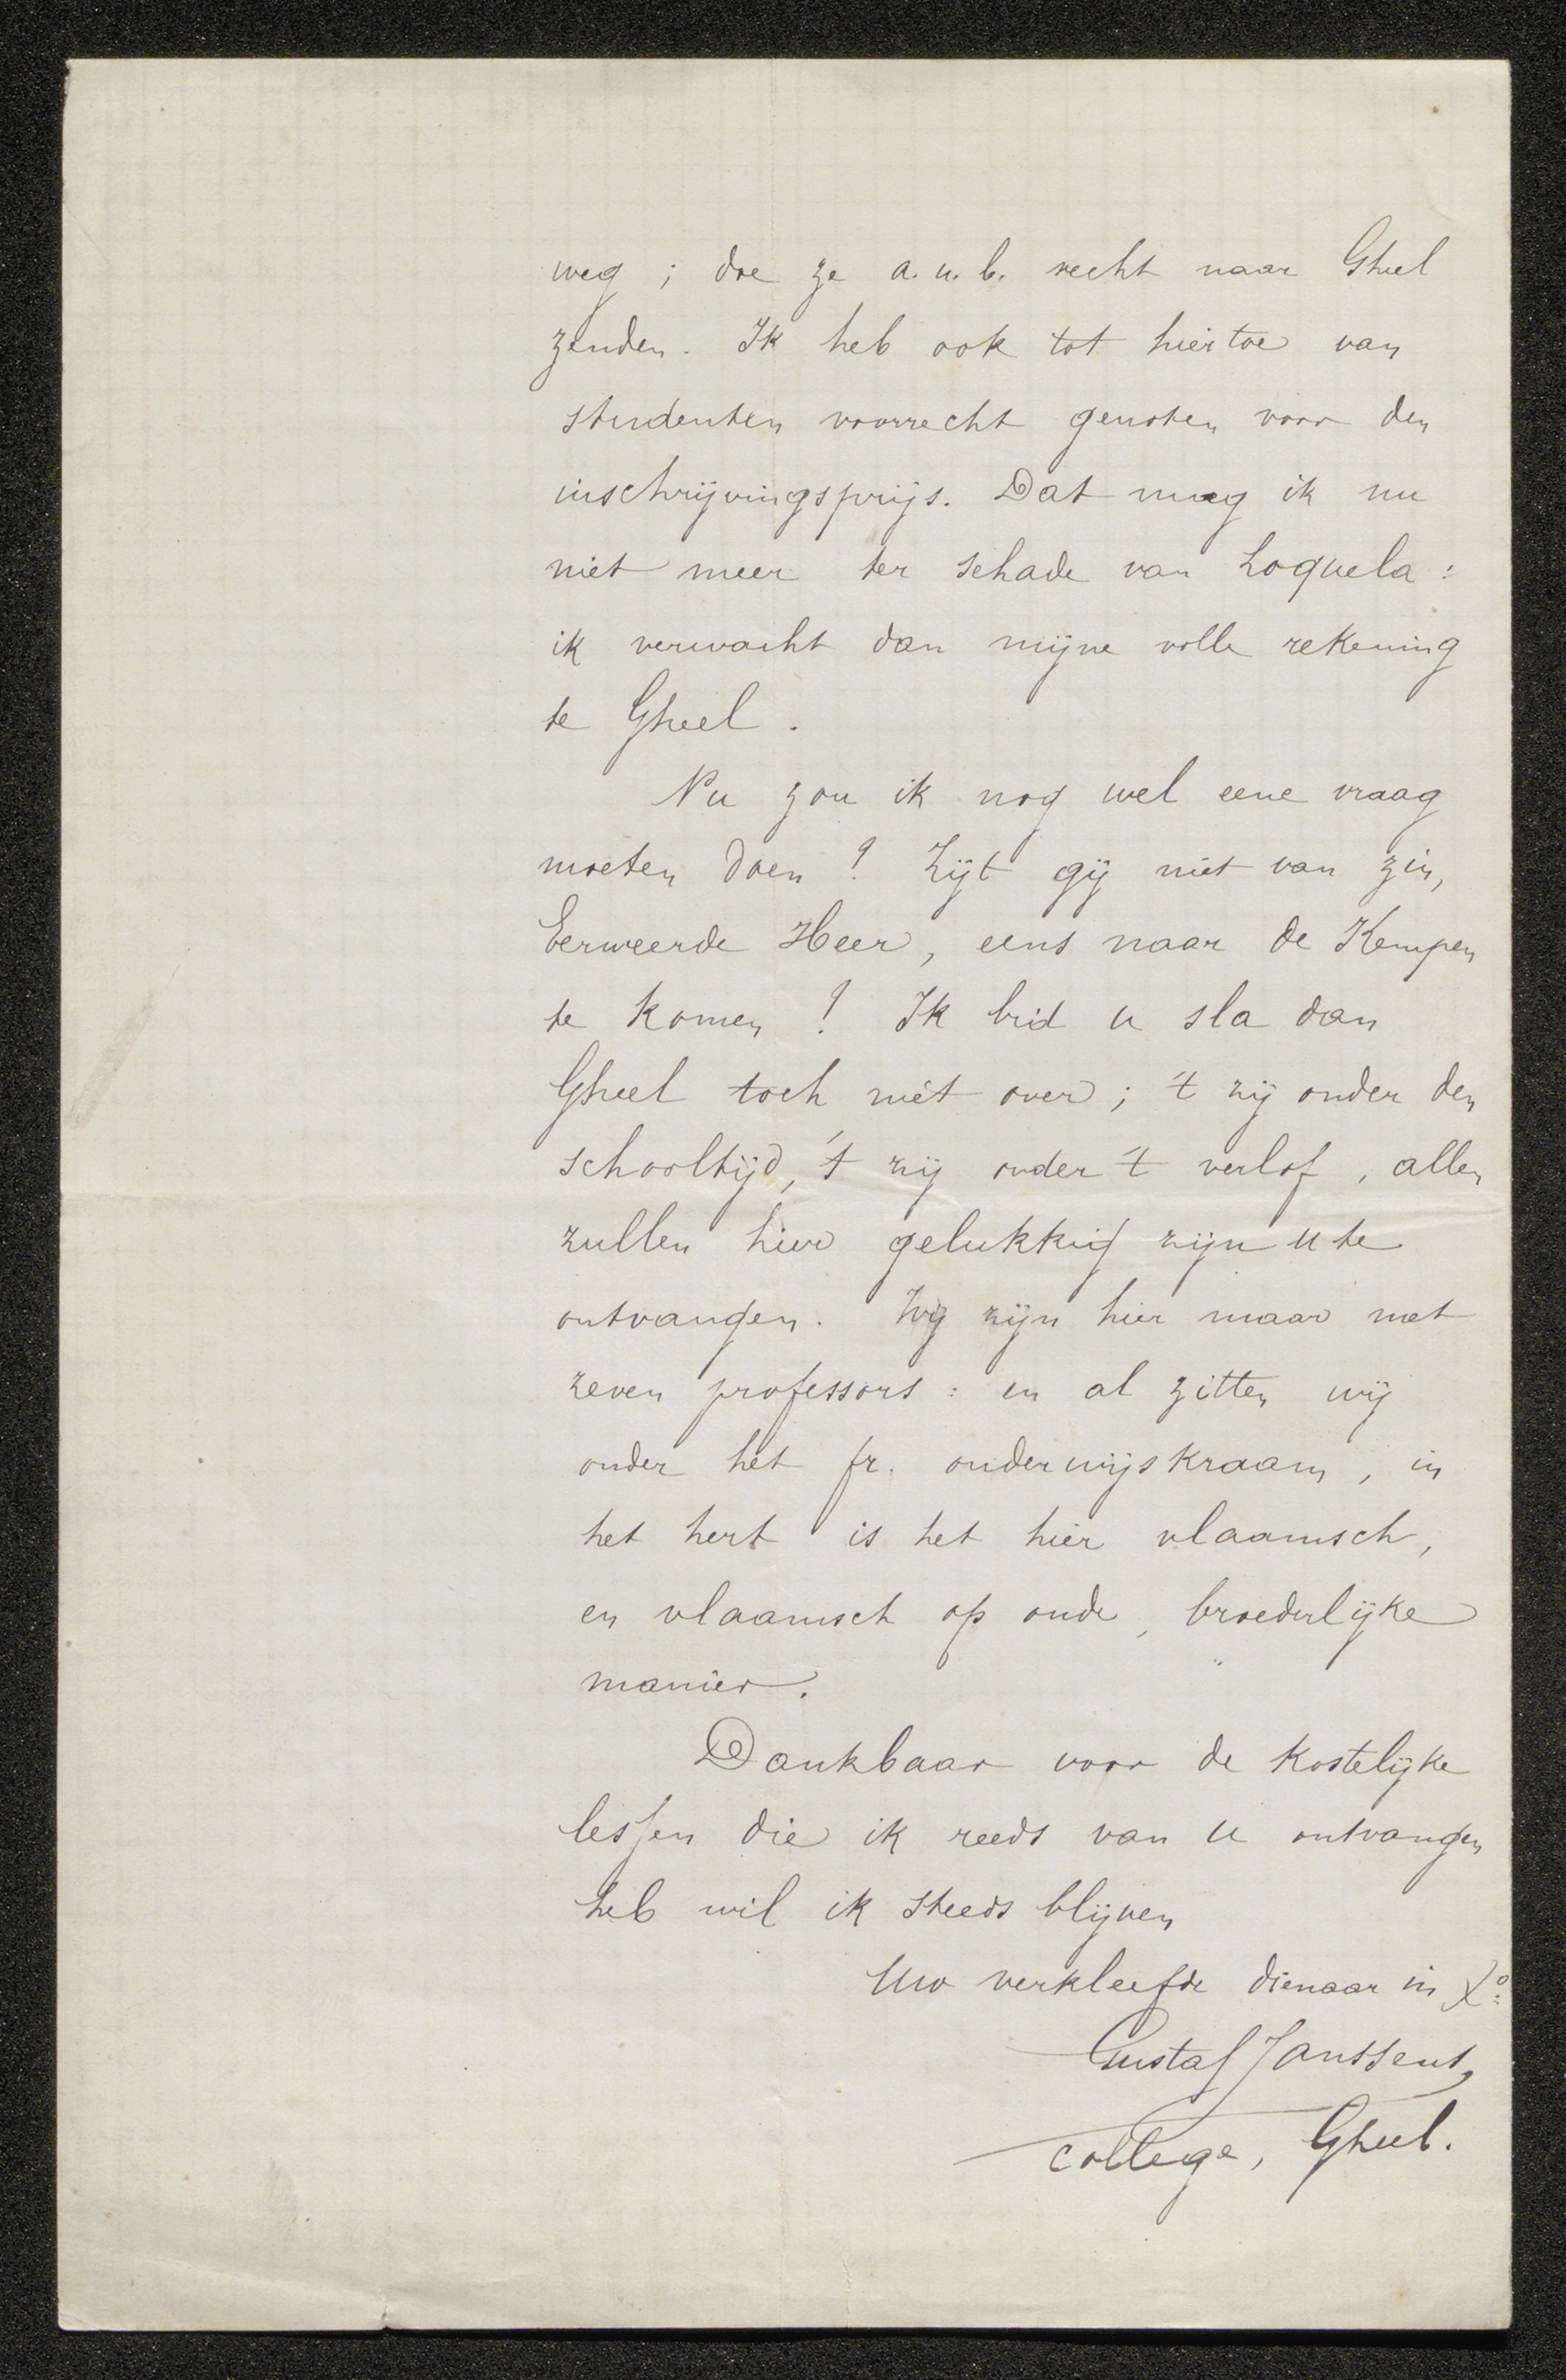 weg ; doe ze a.u.b. recht naar Gheel
zenden. Ik heb ook tot hiertoe van
studenten voorrecht genoten voor den
inschrijvingsprijs. Dat mag ik nu
niet meer ter schade van Loquela :
ik verwacht dan mijne volle rekening
te Gheel .
Nu zou ik nog wel eene vraag
moeten doen ! Zijt gij niet van zin,
Eerweerde Heer, eens naar de Kempen
te komen ? Ik bid u sla dan
Gheel toch niet over ; 't zij onder den
schooltijd, 't zij onder 't verlof , allen
zullen hier gelukkig zijn U te
ontvangen. Wij zijn hier maar met
zeven professors : en al zitten wij
onder het fr. onderwijskraam , in
het hert is het hier vlaamsch ,
en vlaamsch op oude , broederlijke
manier.
Dankbaar voor de kostelijke
lessen die ik reeds van U ontvangen
heb wil ik steeds blijven
Uw verkleefde dienaar in X°:
Gustaf Janssens,
College, Gheel.